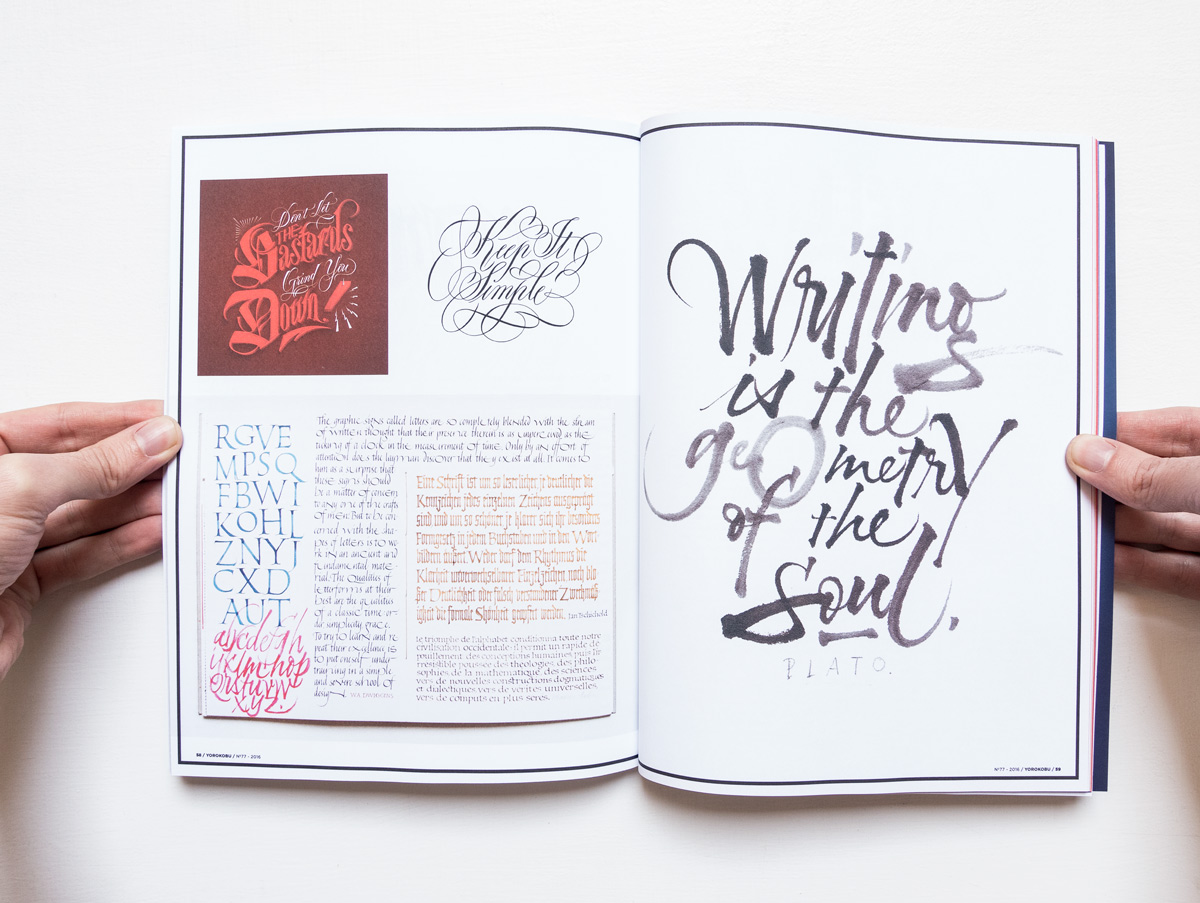 Don't Let
THE
Bastards
Grind You
Down!
Keep It
Simple
RGVE
MPSQ
FBWI
KOHL
ZNYJ
CXD
AUT
abcdefgh
ijklmnop
qrstuvw
x.y.z.
The graphic signs called letters are so completely blended with the stream
of written thought that their presence therein is as unperceived as the
ticking of a clock in the measurement of time. Only by an effort of
attention does the layman discover that they exist at all. It comes to
him as a surprise that
these signs should
be a matter of concern
to any one of the crafts
of men. But to be con-
cerned with the sha-
pes of letters is to wo-
rk in an ancient and
fundamental mate-
rial. The Qualities of
letterform is at their
best are the qualities
of a classic time: or-
der simplicity, grace.
To try to learn and re
peat their excellence is
to put oneself under
traying in a simple
and severe school of
design W.A. DWIGGINS
Eine Schrift ist um so leserlicher je deutlicher die
Kennzeichen jedes einzelnen Zeichens ausgeprägt
sind und um so schöner je klarer sich ihr besonderes
Formgesetz in jedem Buchstaben und in den Wor-
bildern äußert Weder darf dem Rhythmus die
Klarheit unverwechselbarer Einzelzeichen noch blo-
ßer Deutlichkeit oder falsch verstandener Zweckmäß-
igkeit die formale Schönheit geopfert werden. Jan Tschichold
Le triomphe de l'alphabet conditionna toute notre
civilisation occidentale: il permit un rapide dé
pouillement des conceptions humaines puis l'ir
résistible poussée des théologies, des philo-
sophies de la mathématique, des sciences
vers de nouvelles constructions dogmatiques
et dialectiques vers de vérités universelles,
vers de computs en plus serés.
58 / YOROKOBU / Nº77 - 2016
Writing
is the
geometry
of the
soul.
PLATO.
Nº77 - 2016 / YOROKOBU / 59